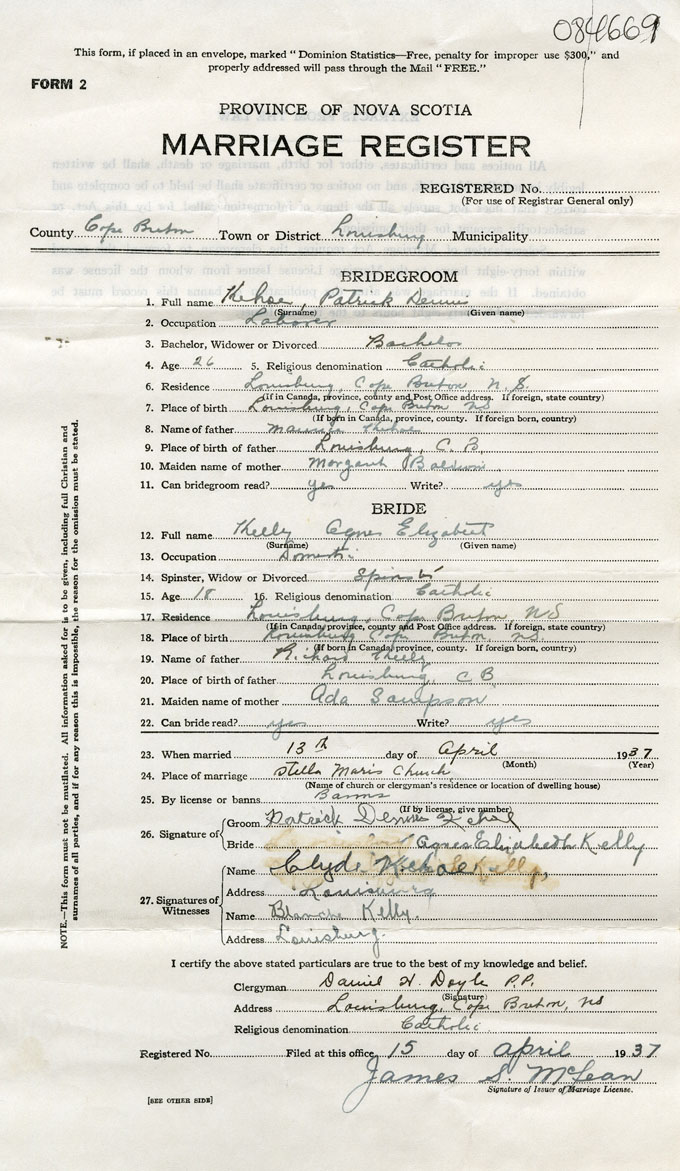 084669
This form, if placed in an envelope, marked “ Dominion Statistics—Free, penalty for improper use $300,” and
properly addressed will pass through the Mail “ FREE.”
FORM 2
PROVINCE OF NOVA SCOTIA
MARRIAGE REGISTER
REGISTERED No.
(For use of Registrar General only)
County Cape Breton Town or District Louisburg Municipality
BRIDEGROOM
1. Full name Kehoe, Patrick Dennis
(Surname) (Given name)
2. Occupation Laborer
3. Bachelor, Widower or Divorced Bachelor
4. Age 26 5. Religious denomination Catholic
6. Residence Louisburg, Cape Breton N.S.
(If in Canada, province, county and Post Office address. If foreign, state country)
7. Place of birth Louisburg, Cape Breton NS
(If born in Canada, province, county. If foreign born, country)
8. Name of father Kehoe
9. Place of birth of father Louisburg, C. B.
10. Maiden name of mother Margaret Baldwin
11. Can bridegroom read? yes Write? yes
BRIDE
12. Full name Kelly Agnes Elizabeth
(Surname) (Given name)
13. Occupation Domestic
14. Spinster, Widow or Divorced Spinster
15. Age 18 16. Religious denomination Catholic
17. Residence Louisburg, Cape Breton, NS
(If in Canada, province, county and Post Office address. If foreign, state country)
18. Place of birth Louisburg Cape Breton NS.
(If born in Canada, province, county. If foreign born, country)
19. Name of father Richard Kelly
20. Place of birth of father Louisburg, C B
21. Maiden name of mother Ada Sampson
22. Can bride read? yes Write? yes
23. When married 13th day of April 1937
(Month) (Year)
24. Place of marriage Stella Maris Church
(Name of church or clergyman's residence or location of dwelling house)
25. By license or banns Banns
(If by license, give number)
26. Signature of
Groom Patrick Dennis Kehoe
Bride Agnes Elizabeth Kelly
27. Signatures of Witnesses
Name Clyde Kehoe Kelly,
Address Louisburg
Name Blanche Kelly.
Address Louisburg.
I certify the above stated particulars are true to the best of my knowledge and belief.
Clergyman Daniel H. Doyle P.P.
(Signature)
Address Louisburg, Cape Breton, NS
Religious denomination Catholic
Registered No. Filed at this office, 15 day of April 1937
James S. McLean
Signature of Issuer of Marriage License.
[SEE OTHER SIDE]
NOTE.—This form must not be mutilated. All information asked for is to be given, including full Christian and
surnames of all parties, and if for any reason this is impossible, the reason for the omission must be stated.